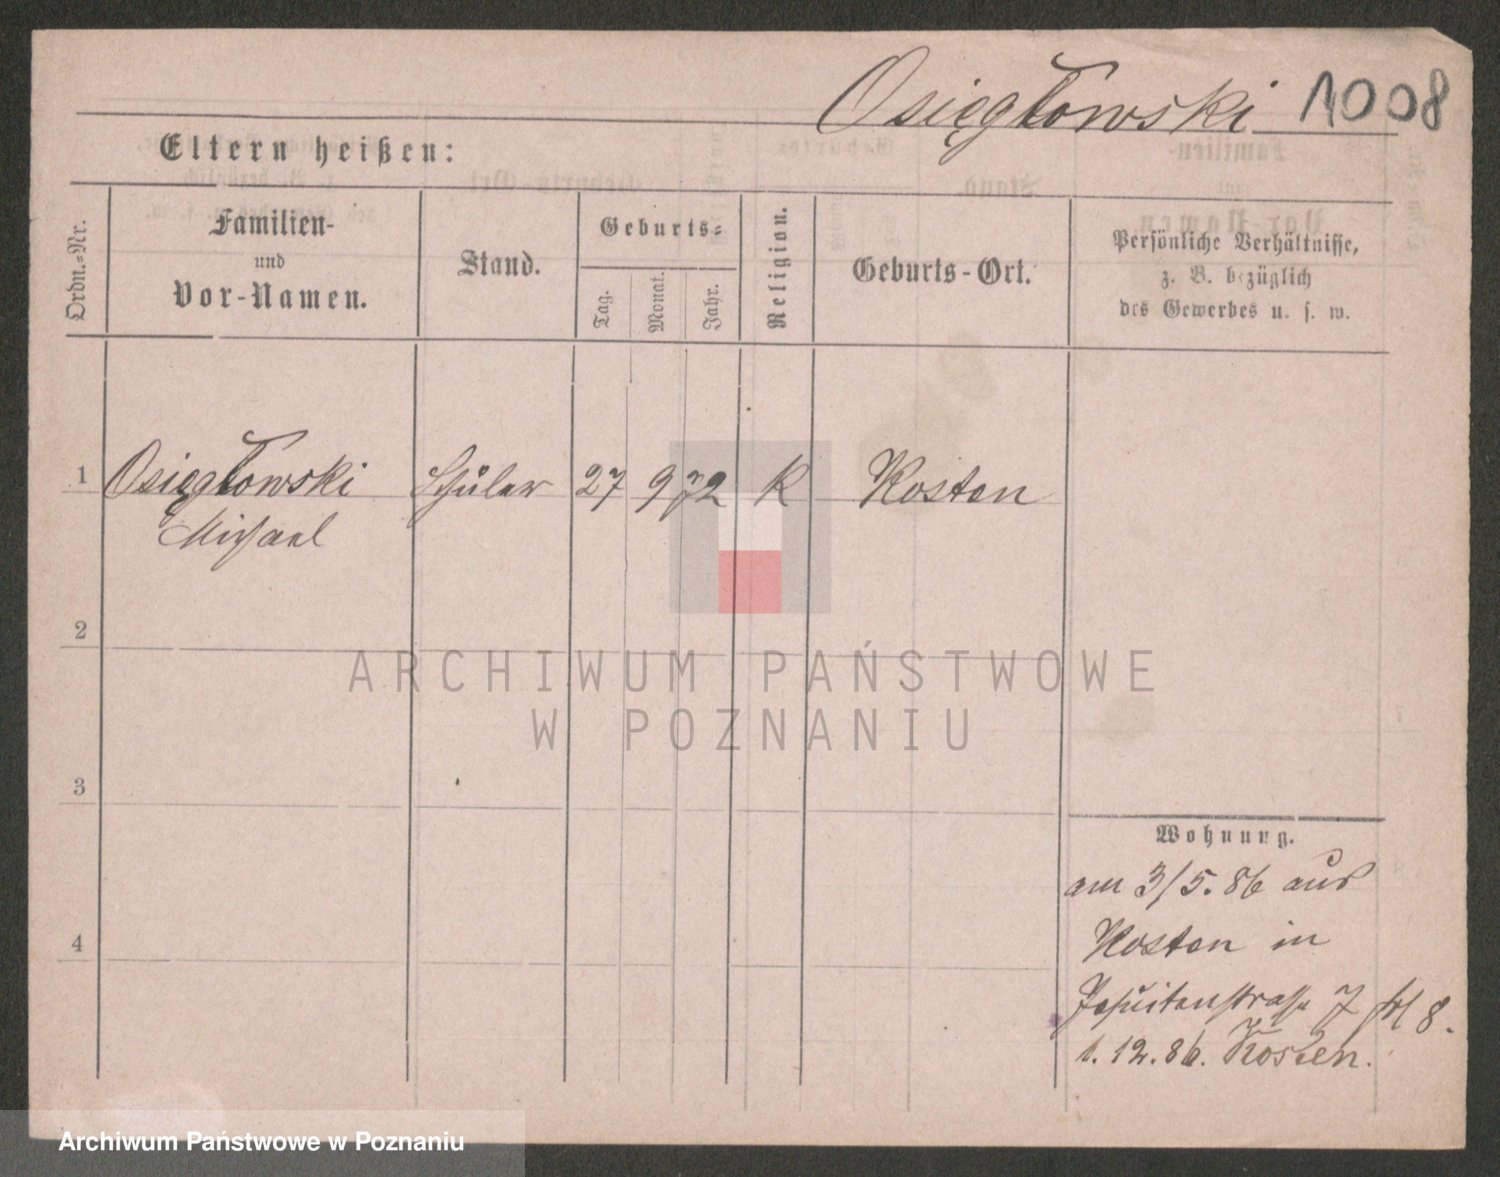 Osięgłowski 1008
Eltern heißen:
Ordn.-Nr.
Familien-
und
Vor-Namen.
Stand.
Geburts-
Tag.
Monat.
Jahr.
Religion.
Geburts-Ort.
Persönliche Verhältnisse,
z. B. bezüglich
des Gewerbes u. s. w.
1 Osięgłowski Schüler 27 9 72 K Kosten
Michael
2
ARCHIWUM PAŃSTWOWE
W POZNANIU
3
Wohnung.
am 3/5. 86 aus
4
Kosten in
Jesuitenstrasse 7 8.
1. 12. 86. Kosten.
Archiwum Państwowe w Poznaniu